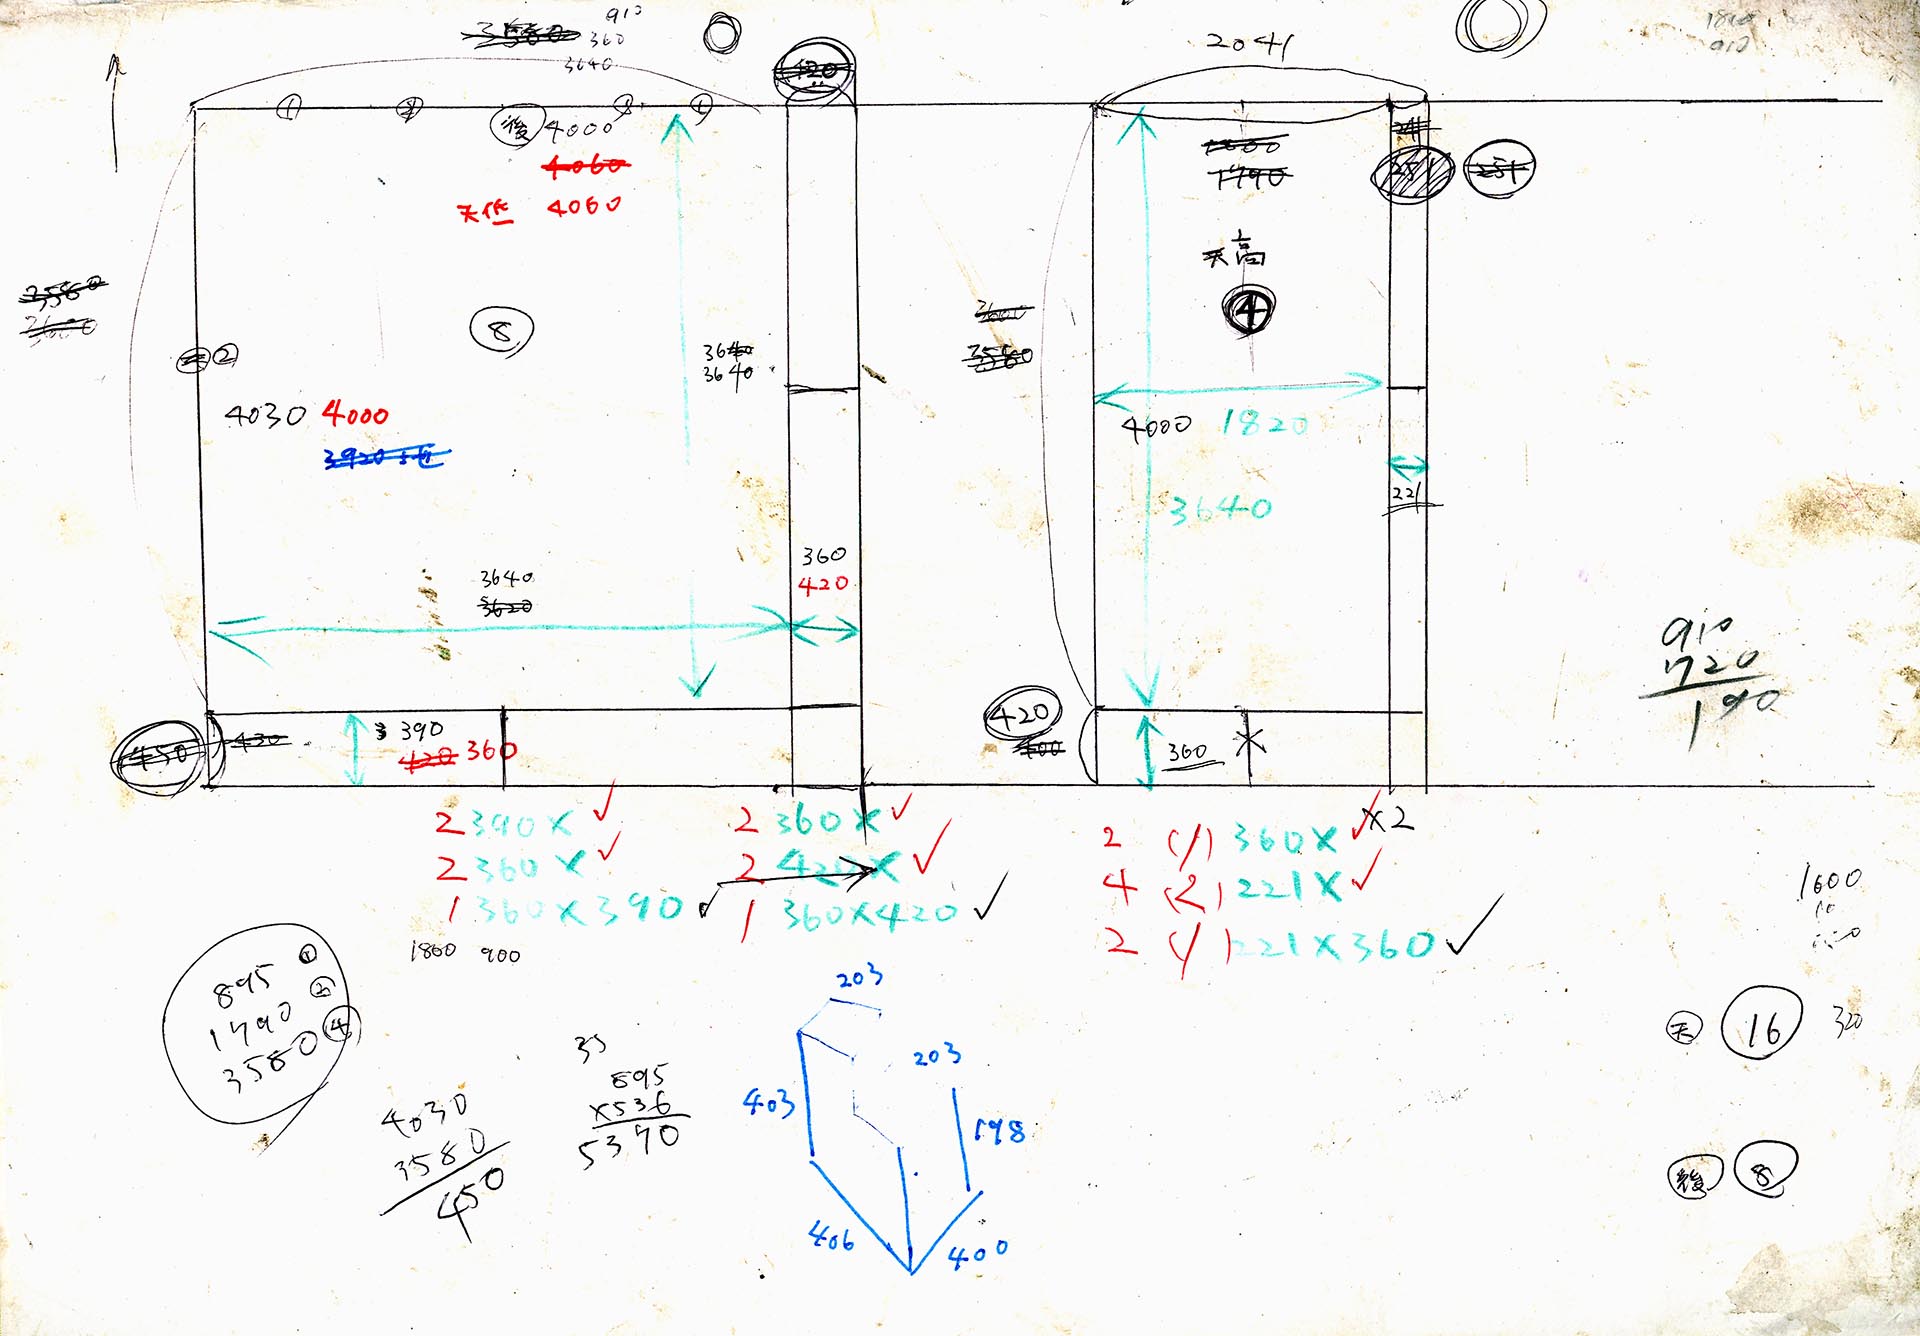 910
3580 360
3640
420
2041
1820
910
① ② ③ ④
後 4000
4060
天低 4060
1600
1790
241
251 251
天高
3580
3600
⑧
④
3600
3580
② 
3640
3640
4030 4000
3920
4000 1820
3640
221
360
420
3640
3620
910
720
190
450 430
390
420 360
420
400
360
2 390× ✓
2 360× ✓
1 360×390 ✓
2 360× ✓
2 420× ✓
1 360×420 ✓
×2
2 (1) 360× ✓
4 (2) 221× ✓
2 (1) 221×360 ✓
1800 900
1600
10
895 ①
1790 ②
3580 ④
4030
3580
450
35
895
×536
5370
203
203
403
198
406
400
天 16 320
後 8